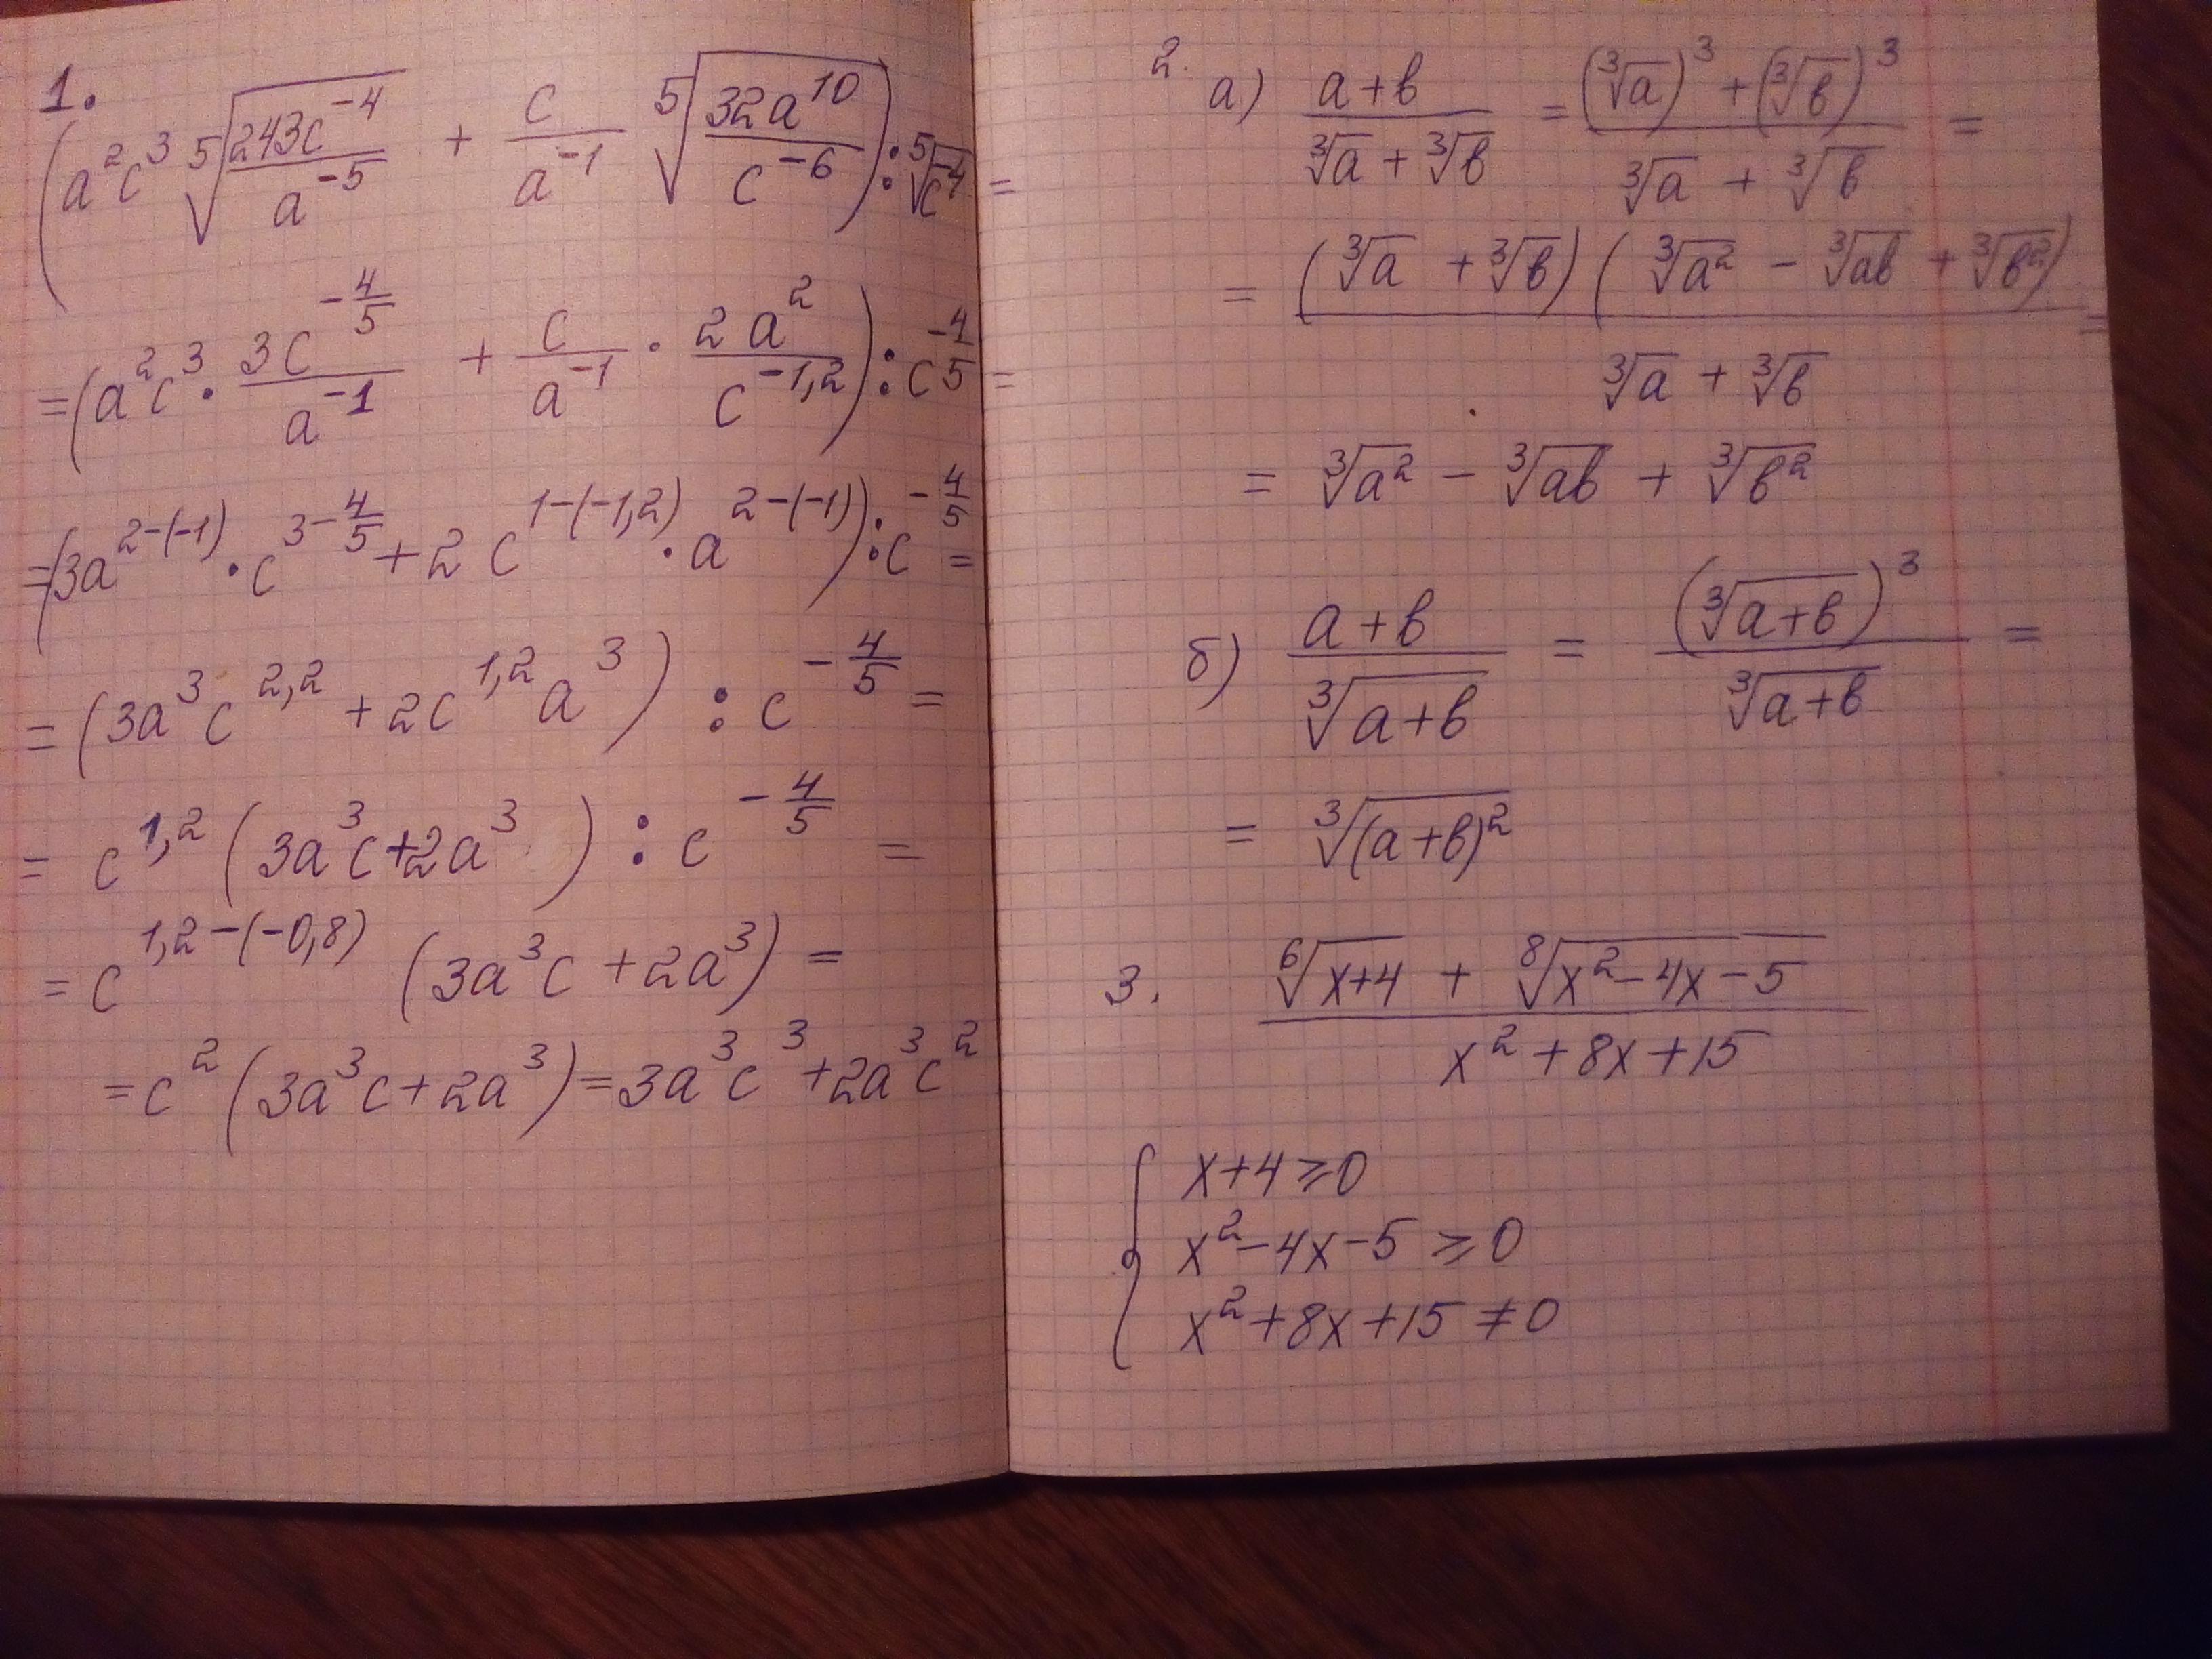 1.
(a²c³ ⁵√(243c⁻⁴/a⁻⁵) + c/a⁻¹ ⁵√(32a¹⁰/c⁻⁶)) : ⁵√c⁻⁴ =
= (a²c³ · 3c^(-4/5)/a⁻¹ + c/a⁻¹ · 2a²/c^(-1,2)) : c^(-4/5) =
= (3a^(2-(-1)) · c^(3-4/5) + 2c^(1-(-1,2)) · a^(2-(-1))) : c^(-4/5) =
= (3a³c^(2,2) + 2c^(1,2)a³) : c^(-4/5) =
= c^(1,2) (3a³c + 2a³) : c^(-4/5) =
= c^(1,2-(-0,8)) (3a³c + 2a³) =
= c² (3a³c + 2a³) = 3a³c³ + 2a³c²
2. а) (a + b)/(³√a + ³√b) = ((³√a)³ + (³√b)³)/(³√a + ³√b) =
= (³√a + ³√b)(³√a² - ³√ab + ³√b²)/(³√a + ³√b) =
= ³√a² - ³√ab + ³√b²
б) (a + b)/³√(a + b) = (³√(a + b))³/³√(a + b) =
= ³√(a + b)²
3. (⁶√(x+4) + ⁸√(x² - 4x - 5))/(x² + 8x + 15)
{ x + 4 ≥ 0
x² - 4x - 5 ≥ 0
x² + 8x + 15 ≠ 0